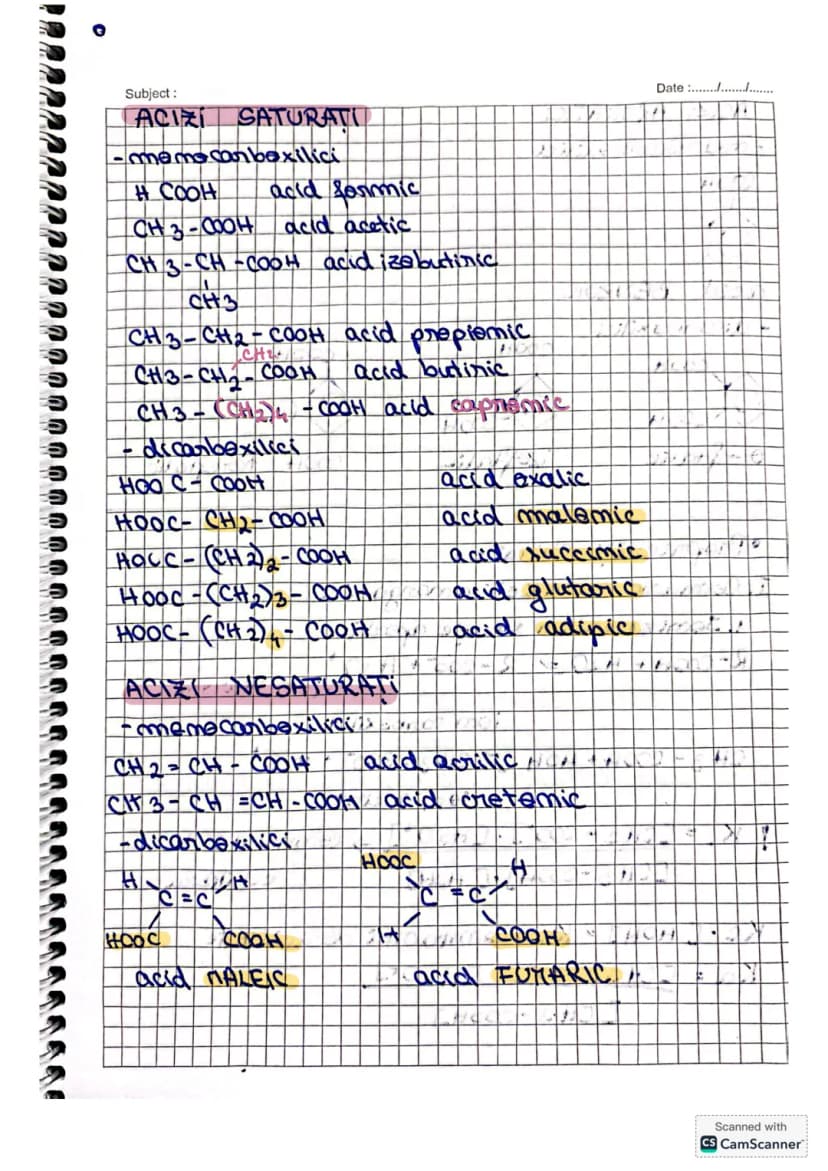 Subject :
Date :......./......./.......
ACIZI SATURAȚI
- monocarboxilici
H COOH acid formic
CH3-COOH acid acetic
CH3-CH-COOH acid izobutiric
CH3
CH3-CH2-COOH acid propionic
CH2
CH3-CH2-COOH acid butiric
CH3-(CH2)4-COOH acid capronic
- dicarboxilici
HOOC-COOH acid oxalic
HOOC-CH2-COOH acid malonic
HOOC-(CH2)2-COOH acid succinic
HOOC-(CH2)3-COOH acid glutaric
HOOC-(CH2)4-COOH acid adipic
ACIZI NESATURAȚI
- monocarboxilici
CH2=CH-COOH acid acrilic
CH3-CH=CH-COOH acid crotonic
- dicarboxilici
HOOC
H H H
C=C C=C
HOOC COOH H COOH
acid MALEIC acid FUMARIC
Scanned with
CS CamScanner